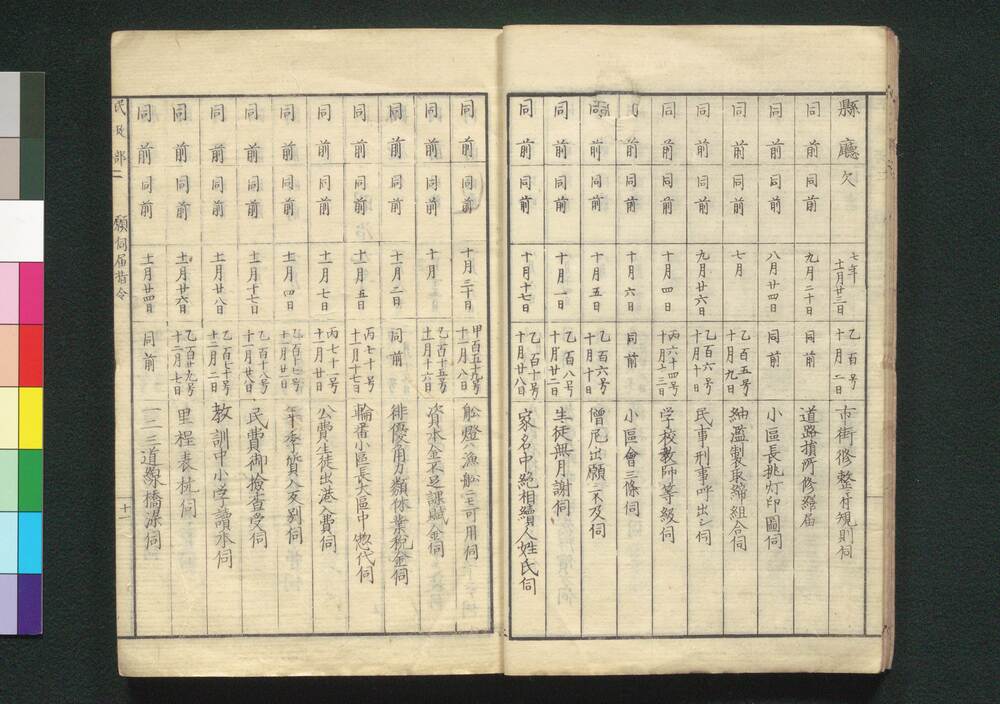 縣廳欠 七年十一月廿三日 乙百号十月二日 市街修整ノ村規則伺
同前 九月二十日 同前 道路損所修繕届
同前 同前 八月廿四日 同前 小區長挑灯印圖伺
同前 同前 七月 乙百五号十一月九日 紬濫製取締組合伺
同前 同前 九月廿六日 乙百六号十月十日 民事刑事呼出シ伺
同前 同前 十月四日 丙六十四号十月十三日 学校教師等級伺
同前 十月六日 同前 小區會三條伺
同前 同前 十月五日 乙百六号十月十日 僧尼出願ニ不及伺
同前 同前 十月一日 乙百八号十月廿二日 生徒無月謝伺
同前 同前 十月十七日 乙百十号十月廿八日 家名中絶相續人姓氏伺
同前 同前 十月三十日 甲百五十九号十二月八日 舩燈ハ漁舩ニモ可用伺
同前 同前 十月 乙百十五号十一月十六日 資本金不足課賦金伺
同前 同前 十一月二日 同前 俳優角力類休業税金伺
同前 同前 十一月五日 丙七十号十一月十七日 輪番小區長大區中惣代伺
同前 同前 十一月七日 丙七十一号十一月廿日 公費生徒出港入費伺
同前 同前 十一月四日 乙百十七号十一月廿日 年季質入支別伺
同前 同前 十一月十七日 乙百十八号十一月廿日 民費御検査受伺
同前 同前 十一月廿八日 乙百廿号十二月二日 教訓中小学讀本伺
同前 同前 十一月廿六日 乙百廿九号十二月七日 里程表杭伺
同前 同前 十一月廿四日 同前 一二三道線橋梁伺
民政部二 願伺届指令 十一